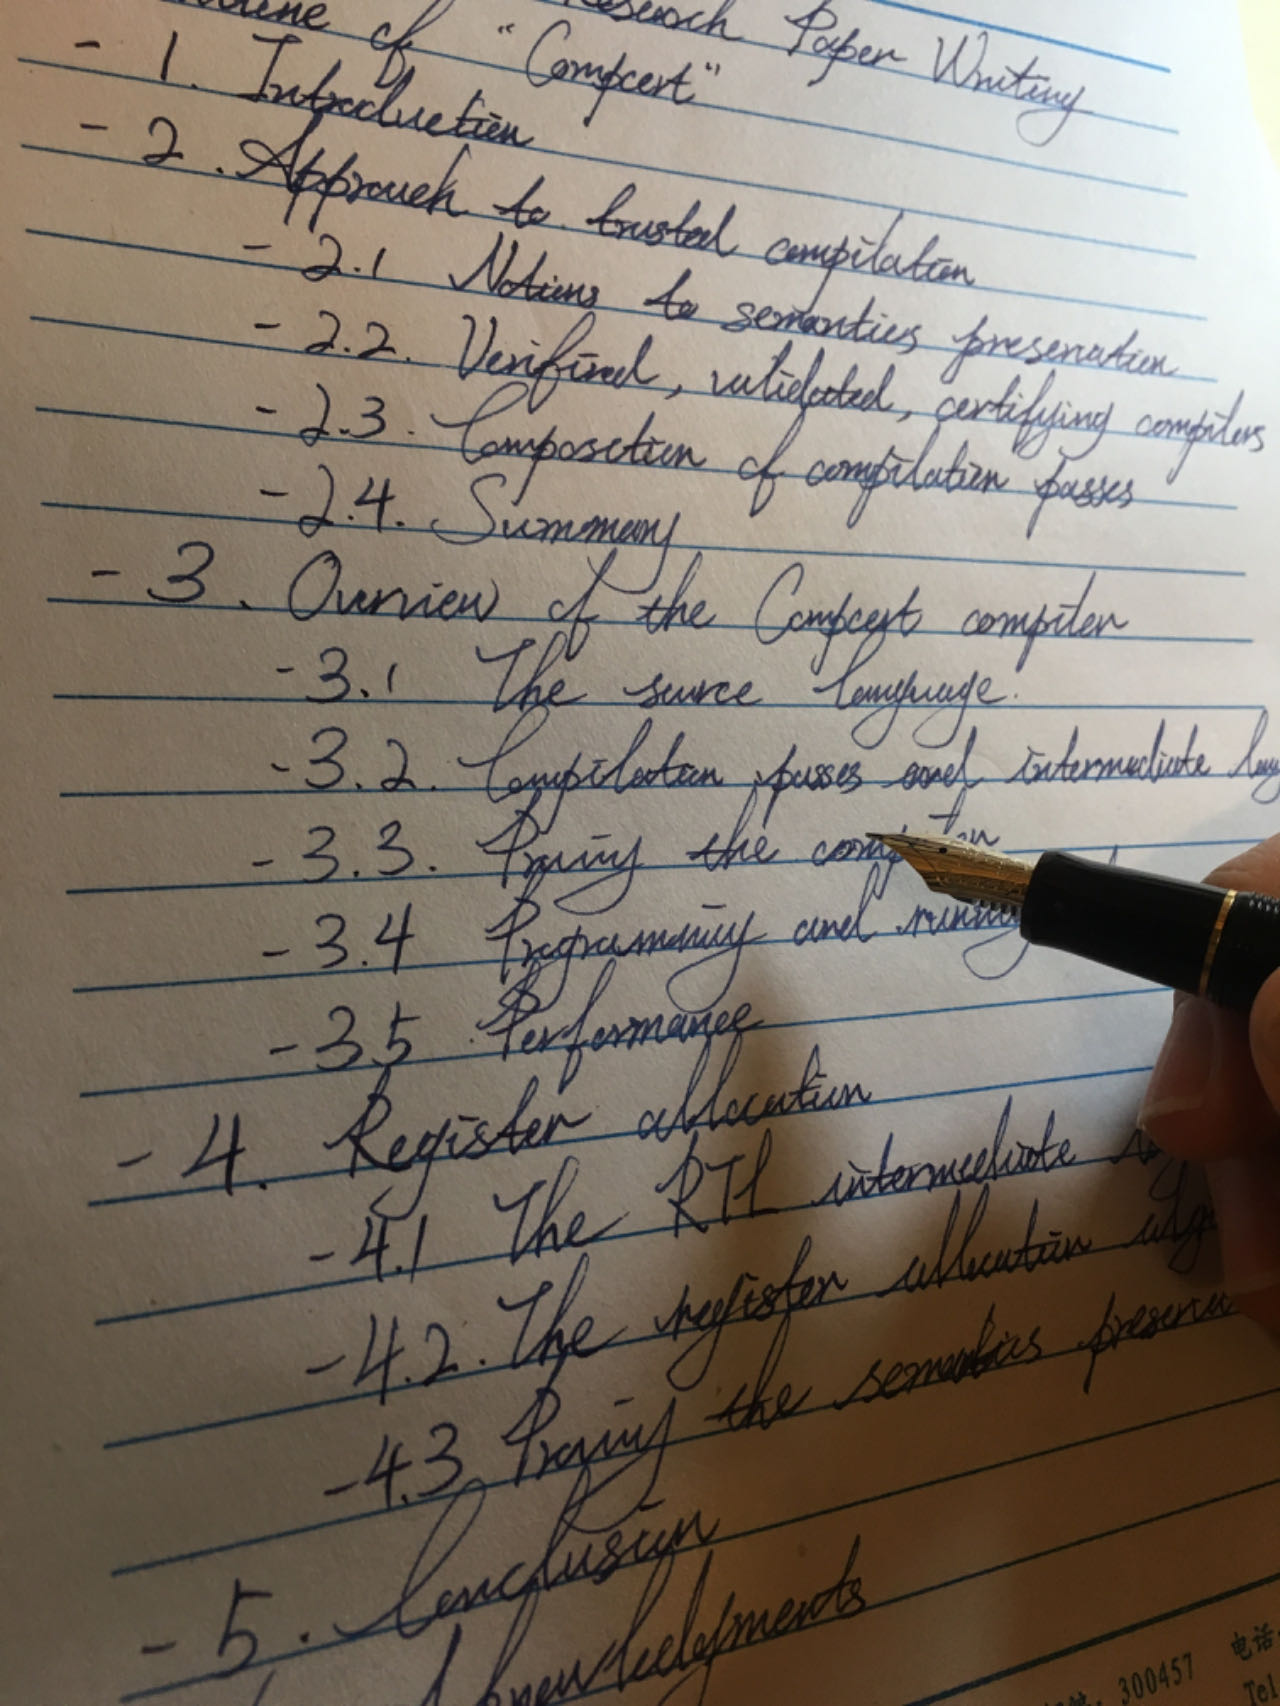 Research Paper Writing
of "Compcert"
- 1. Introduction
- 2. Approach to trusted compilation
- 2.1 Notions to semantics preservation
- 2.2. Verified, validated, certifying compilers
- 2.3. Composition of compilation passes
- 2.4. Summary
- 3. Overview of the Compcert compiler
- 3.1 The source language.
- 3.2. Compilation passes and intermediate
- 3.3. Proving the
- 3.4 Programming and
- 3.5 Performance
- 4. Register allocation
- 4.1 The RTL intermediate
- 4.2. The register allocation
- 4.3 Proving the semantics
- 5. Conclusion
300457 电话
Tel